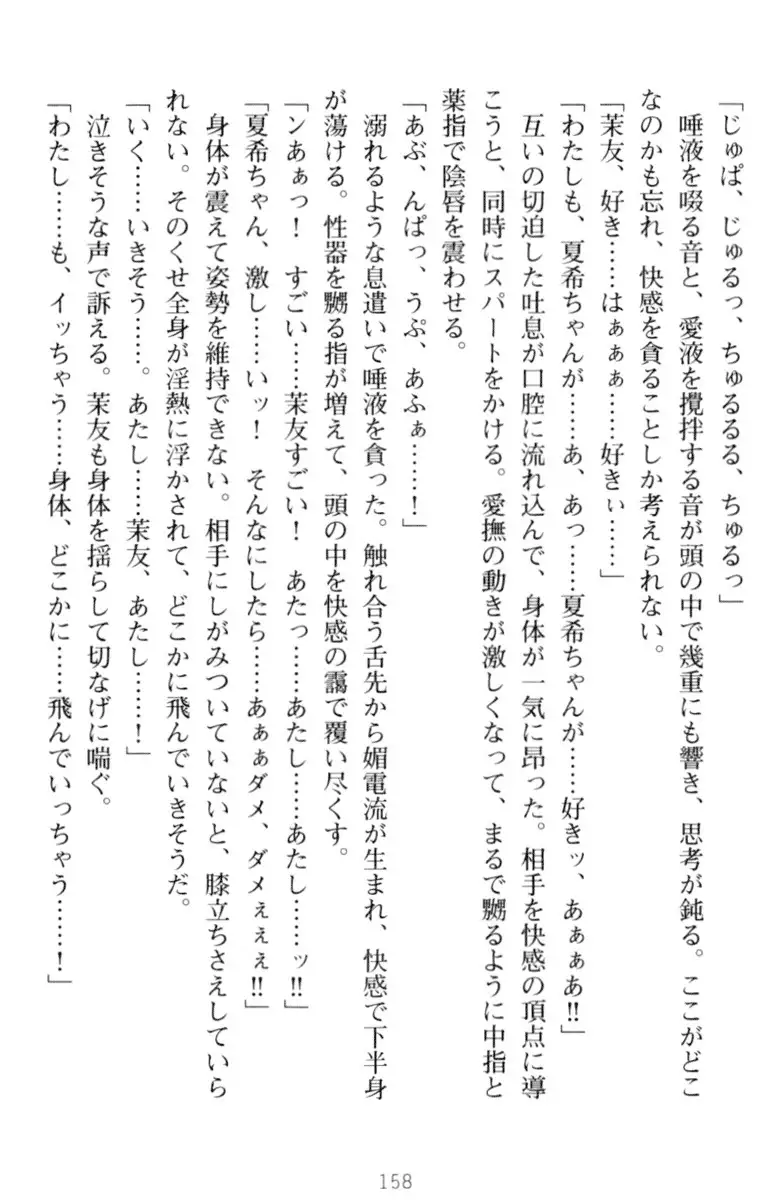 「じゅぱ、じゅるっ、ちゅるるる、ちゅるっ」
　唾液を啜る音と、愛液を攪拌する音が頭の中で幾重にも響き、思考が鈍る。ここがどこ
なのかも忘れ、快感を貪ることしか考えられない。
「茉友、好き……はぁぁぁ……好きぃ……」
「わたしも、夏希ちゃんが……あ、あっ……夏希ちゃんが……好きッ、あぁぁあ‼」
　互いの切迫した吐息が口腔に流れ込んで、身体が一気に昂った。相手を快感の頂点に導
こうと、同時にスパートをかける。愛撫の動きが激しくなって、まるで嬲るように中指と
薬指で陰唇を震わせる。
「あぶ、んぱっ、うぷ、あふぁ……！」
　溺れるような息遣いで唾液を貪った。触れ合う舌先から媚電流が生まれ、快感で下半身
が蕩ける。性器を嬲る指が増えて、頭の中を快感の靄で覆い尽くす。
「ンあぁっ！　すごい……茉友すごい！　あたっ……あたし……あたし……ッ‼」
「夏希ちゃん、激し……いッ！　そんなにしたら……あぁぁダメ、ダメぇぇぇ‼」
　身体が震えて姿勢を維持できない。相手にしがみついていないと、膝立ちさえしていら
れない。そのくせ全身が淫熱に浮かされて、どこかに飛んでいきそうだ。
「いく……いきそう……。あたし……茉友、あたし……！」
　泣きそうな声で訴える。茉友も身体を揺らして切なげに喘ぐ。
「わたし……も、イッちゃう……身体、どこかに……飛んでいっちゃう……！」
158